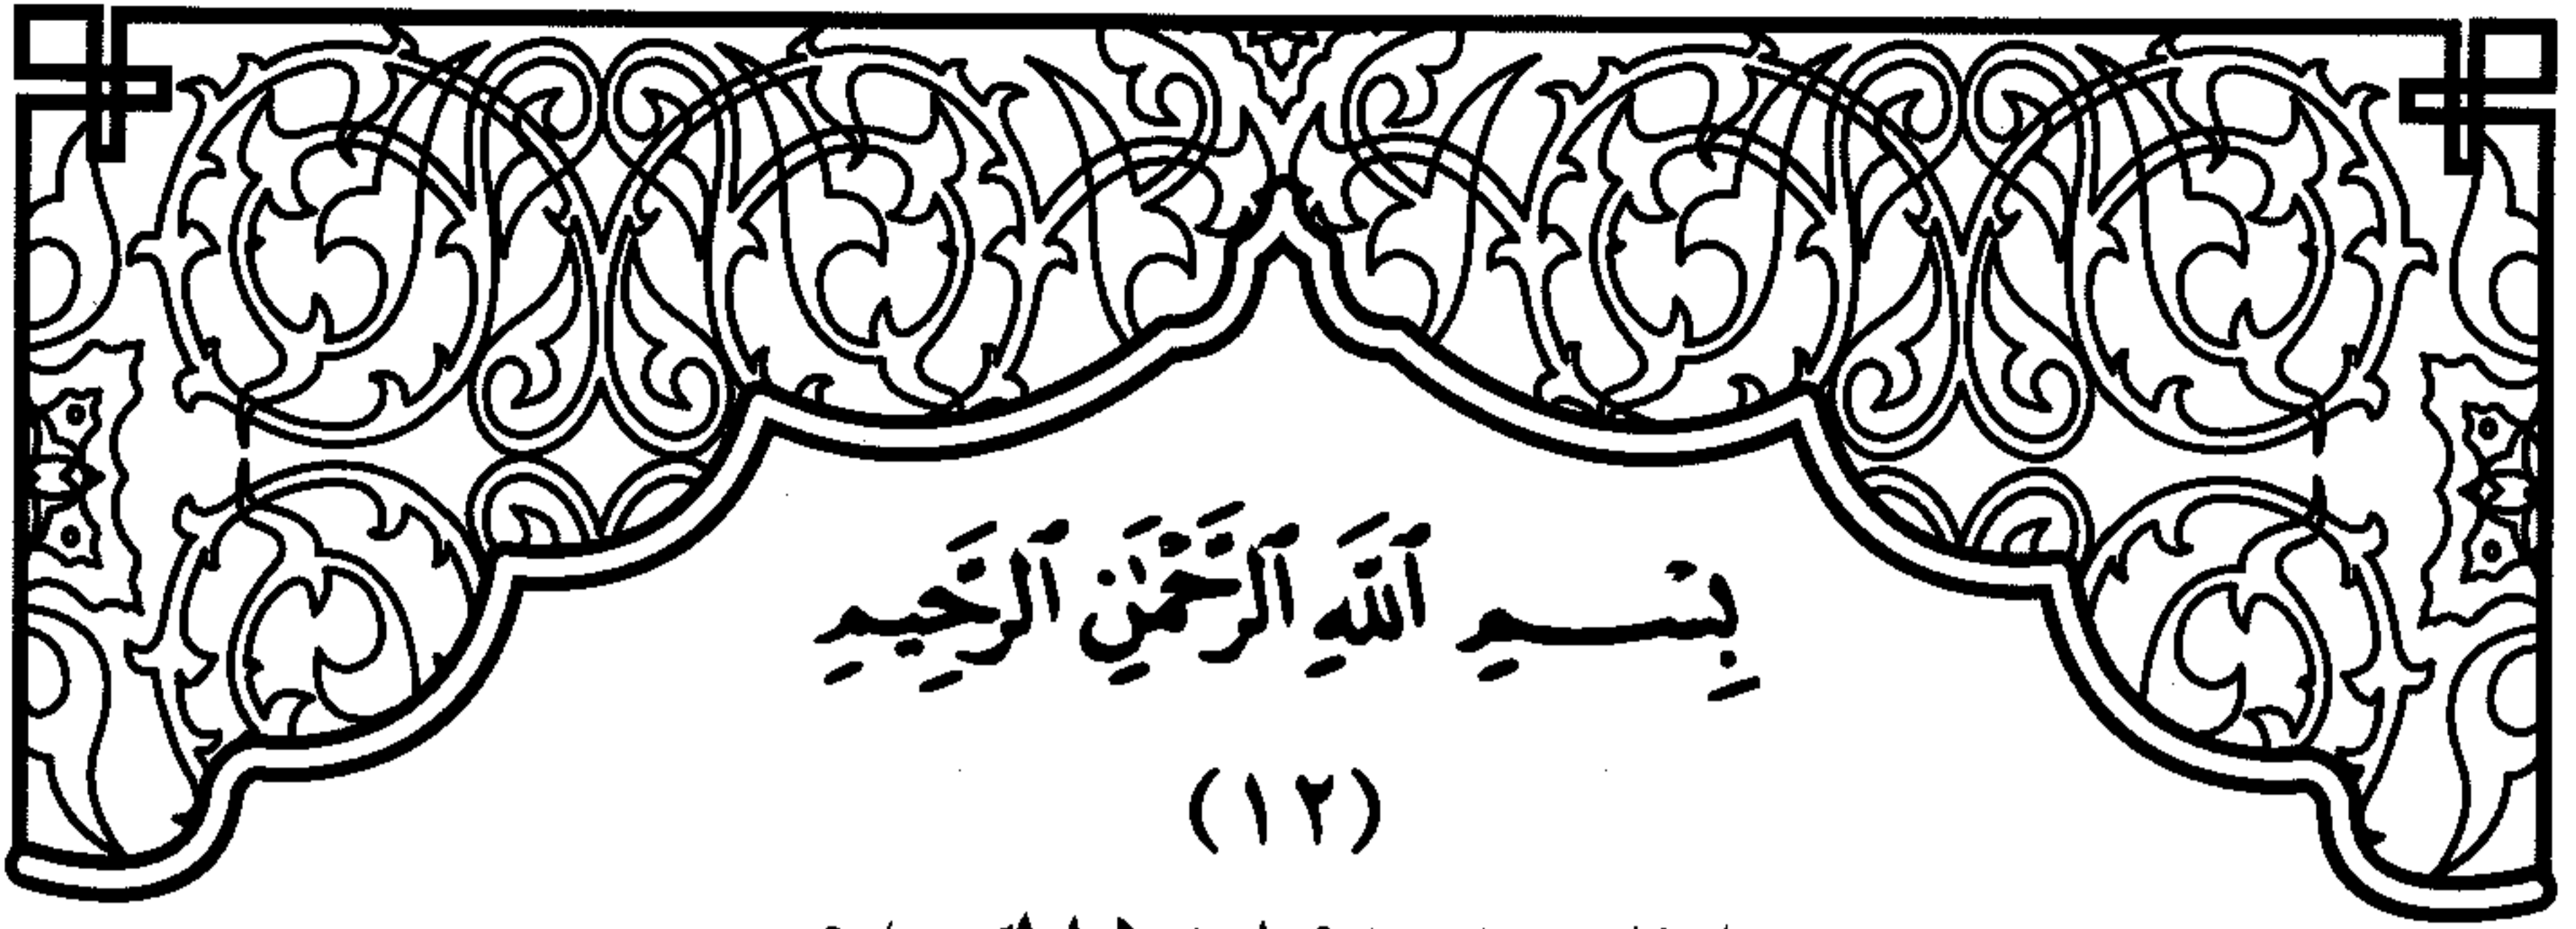 بِسْمِ ٱللَّهِ ٱلرَّحْمَٰنِ ٱلرَّحِيمِ
(١٢)